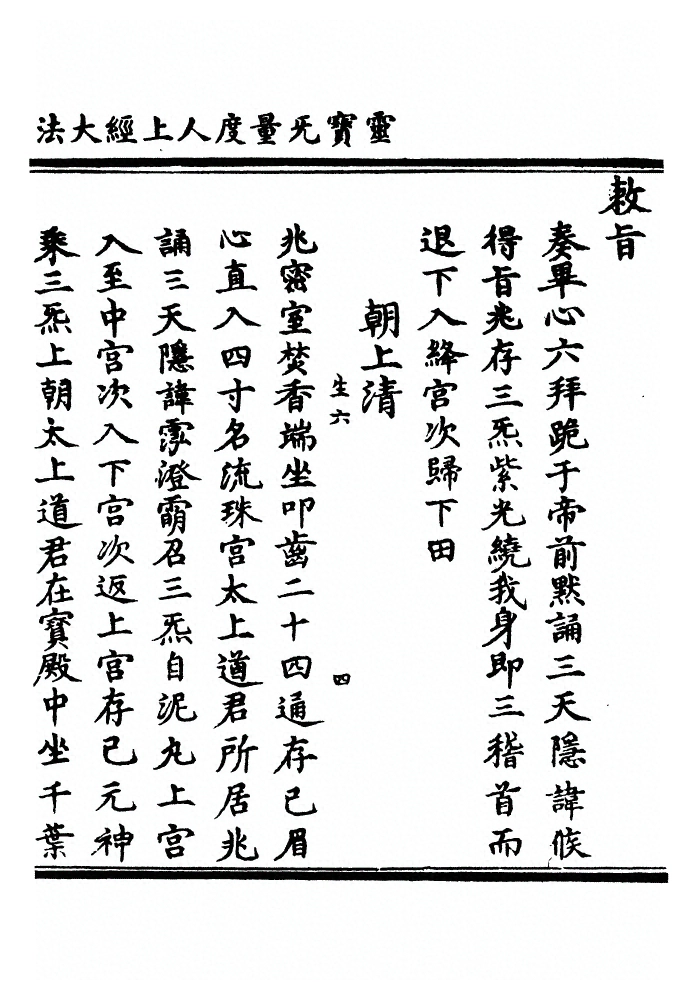 靈寶无量度人上經大法
敕旨
奏畢心六拜跪于帝前默誦三天隱諱候
得旨兆存三炁紫光繞我身即三稽首而
退下入絳宮次歸下田
朝上清
生六 四
兆密室焚香端坐叩齒二十四通存已眉
心直入四寸名流珠宮太上道君所居兆
誦三天隱諱澄召三炁自泥丸上宮
入至中宮次入下宮次返上宮存已元神
乘三炁上朝太上道君在寶殿中坐千葉